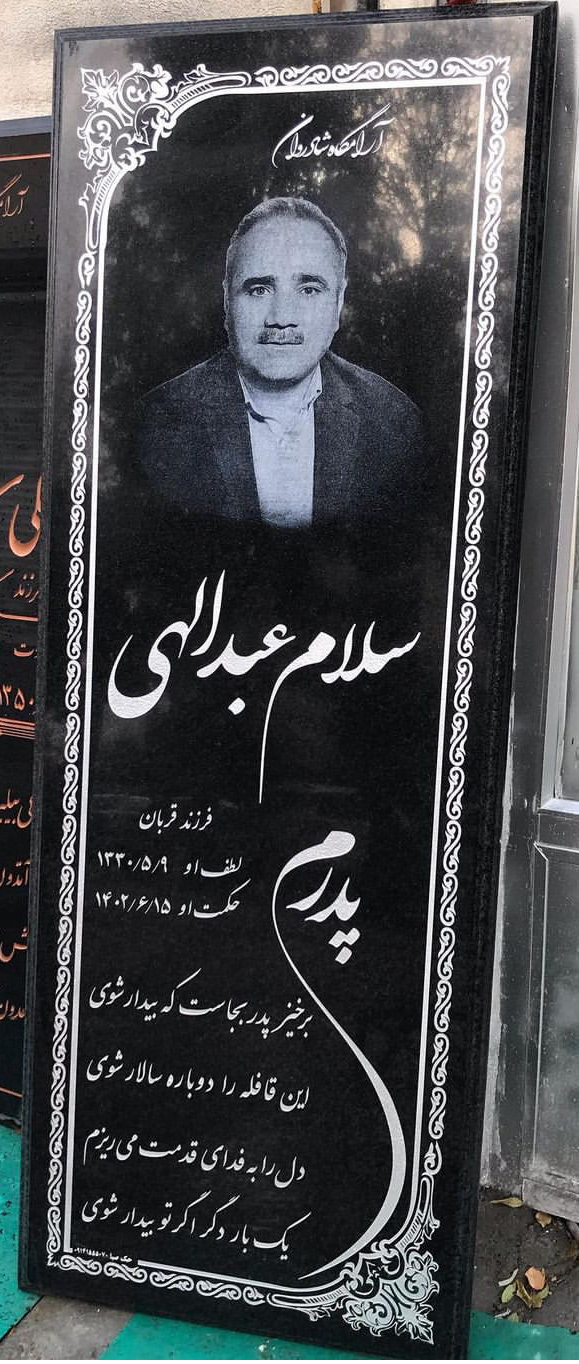 آرامگاه شادروان
سلام عبدالهی
پدرم
فرزند قربان
لطف او ۱۳۳۰/۵/۹
حکمت او ۱۴۰۲/۶/۱۵
برخیز پدر بجاست که بیدار شوی
این قافله را دوباره سالار شوی
دل را به فدای قدمت می ریزم
یک بار دگر اگر تو بیدار شوی